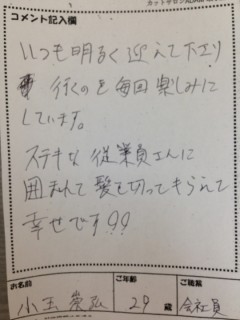 コメント記入欄
いつも明るく迎えて下さり
行くのを毎回楽しみに
しています。
ステキな従業員さんに
囲まれて髪を切ってもらえて
幸せです!!
お名前
小玉 崇弘
ご年齢
29 歳
ご職業
会社員